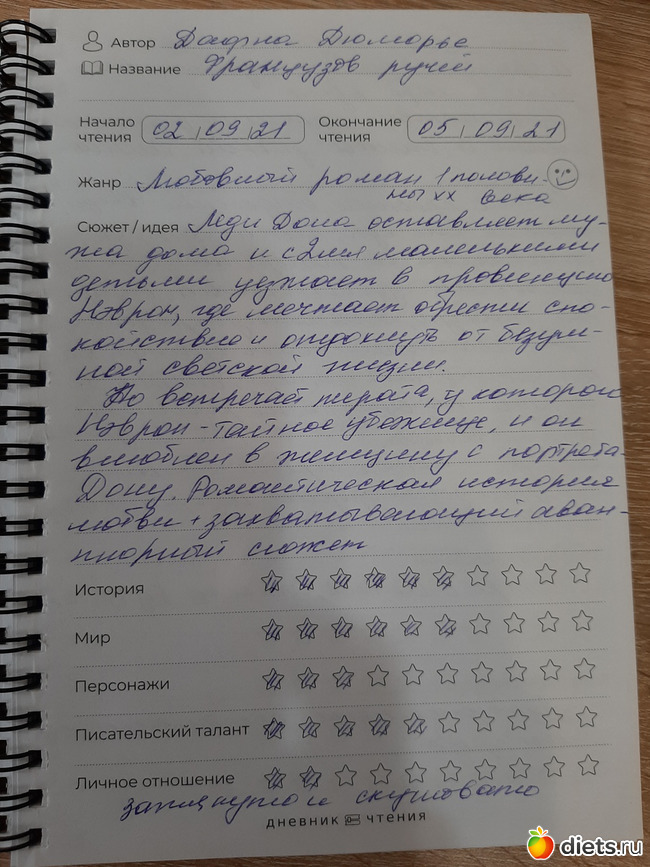 Автор Дафна Дюморье
Название Французов ручей
Начало чтения 02 09 21 Окончание чтения 05 09 21
Жанр Любовный роман 1 полови-
ны XX века
Сюжет / идея Леди Дона оставляет му-
жа дома и с 2мя маленькими
детьми уезжает в провинцию
Нэврон, где мечтает обрести спо-
койствие и отдохнуть от безум-
ной светской жизни.
Но встречает пирата, у которого
Нэврон - тайное убежище, и он
влюблен в женщину с портрета-
Дону. Романтическая история
любви + захватывающий аван-
тюрный сюжет
История
Мир
Персонажи
Писательский талант
Личное отношение
затянуто и скучновато
дневник чтения
diets.ru